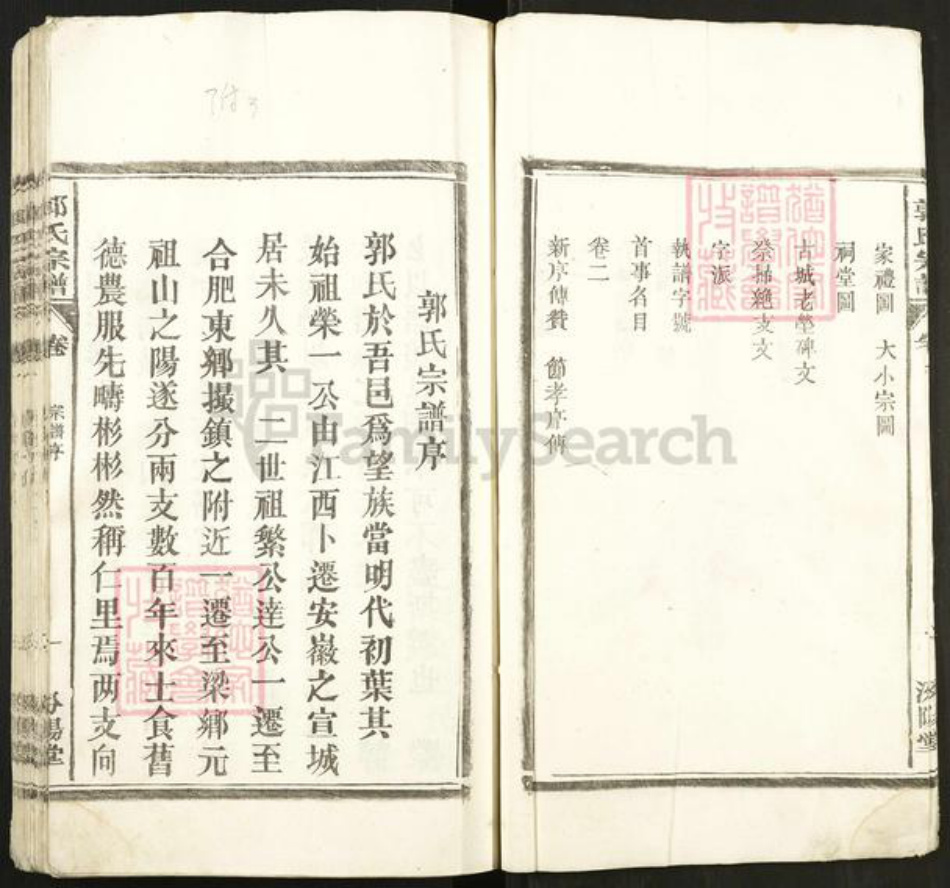 家禮圖　大小宗圖
祠堂圖
古城老塋碑文
祭掃絶支文
字派
執譜字號
首事名目
卷二
新序傳贊　節孝序傳
郭氏宗譜序
郭氏於吾邑爲望族當明代初葉其
始祖榮一公由江西卜遷安徽之宣城
居未久其　二世祖繁公達公一遷至
合肥東鄉撮鎮之附近一遷至梁鄉元
祖山之陽遂分兩支數百年來士食舊
德農服先疇彬彬然稱仁里焉两支向
郭氏宗譜
卷
宗譜序
一
汾陽堂
FamilySearch